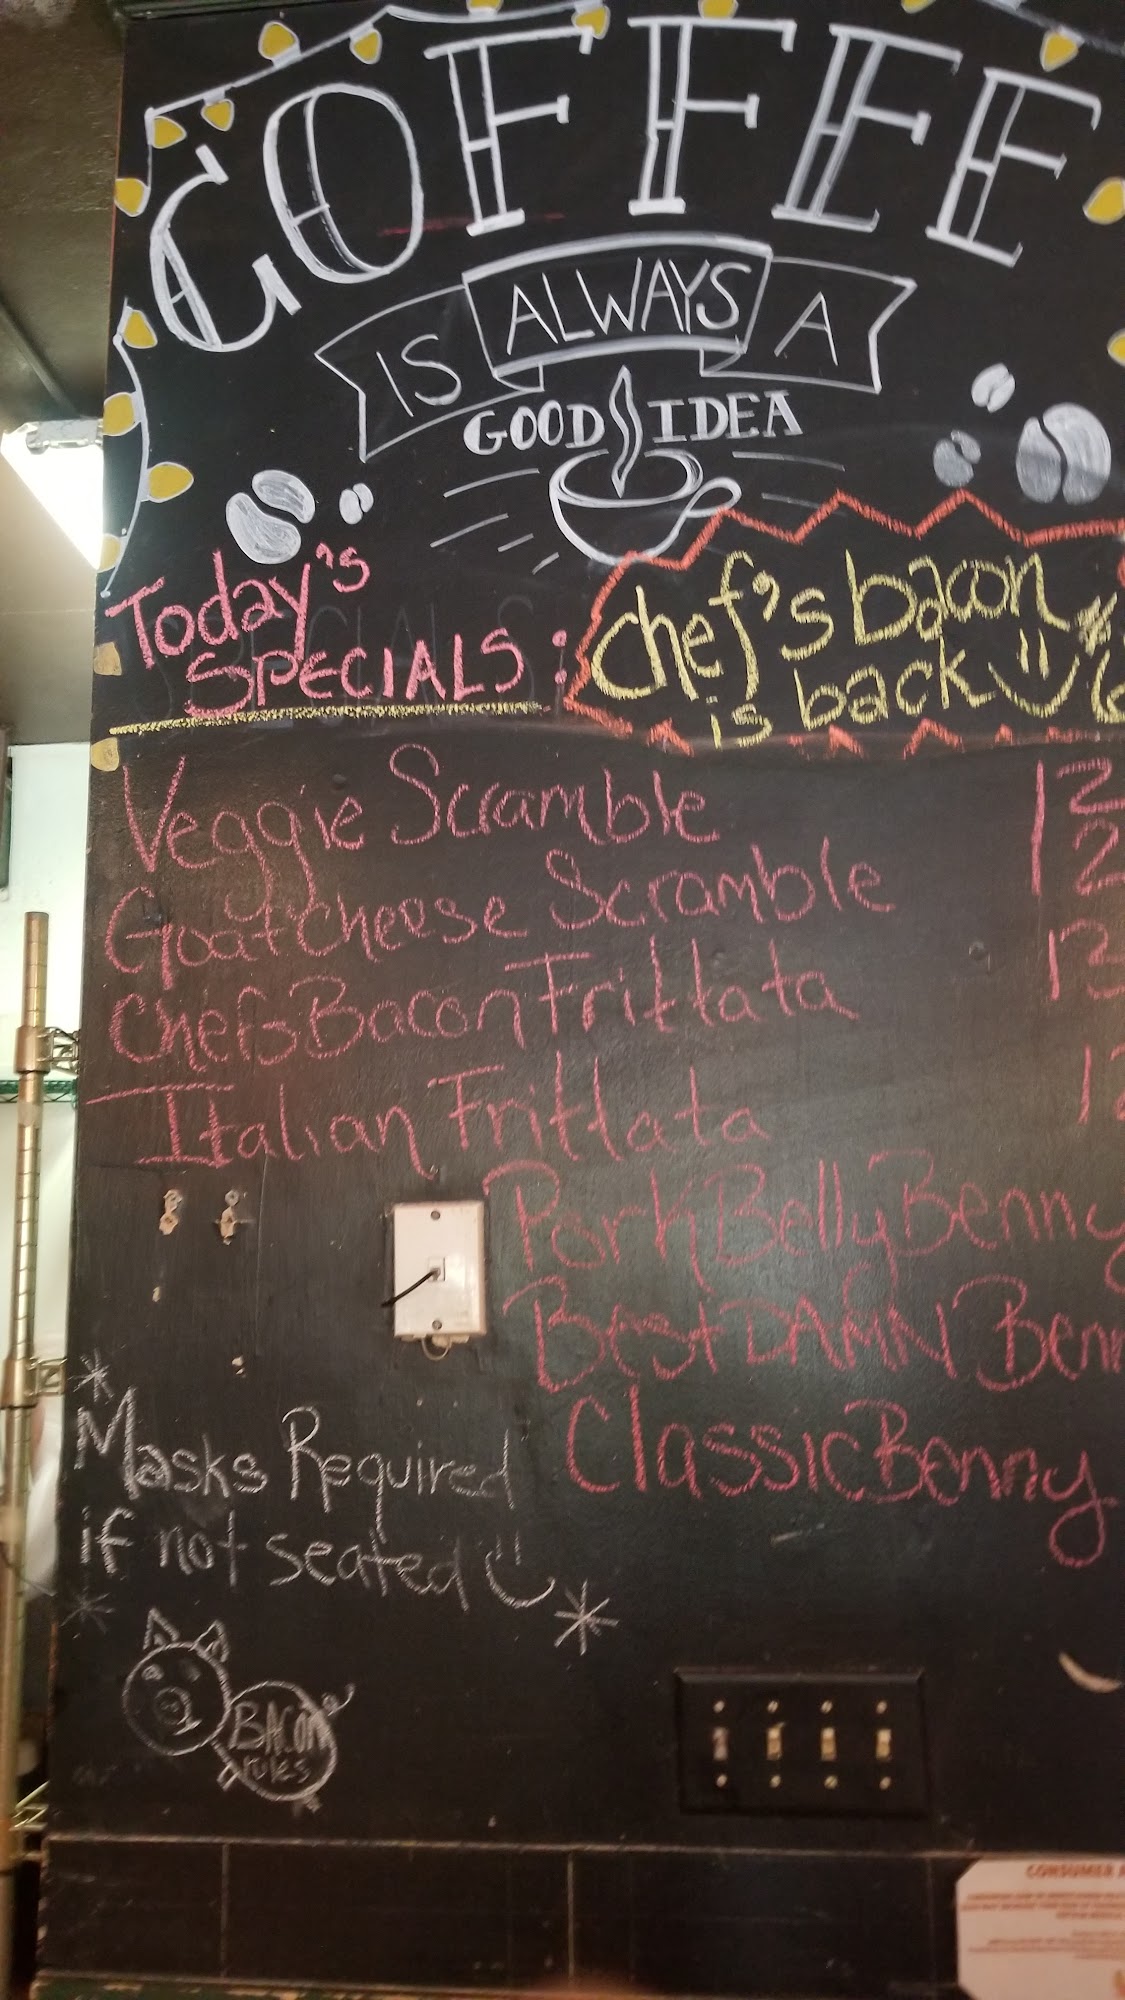 COFFEE
IS ALWAYS A
GOOD IDEA
Today's
SPECIALS:
Chef's bacon
is back
Veggie Scramble 12
Goat cheese Scramble 12
Chefs Bacon Frittata 13
Italian Frittata
Pork Belly Benny
Best DAMN Benn
Classic Benny
*
Masks Required
if not seated
* *
BACON
rules
CONSUMER A